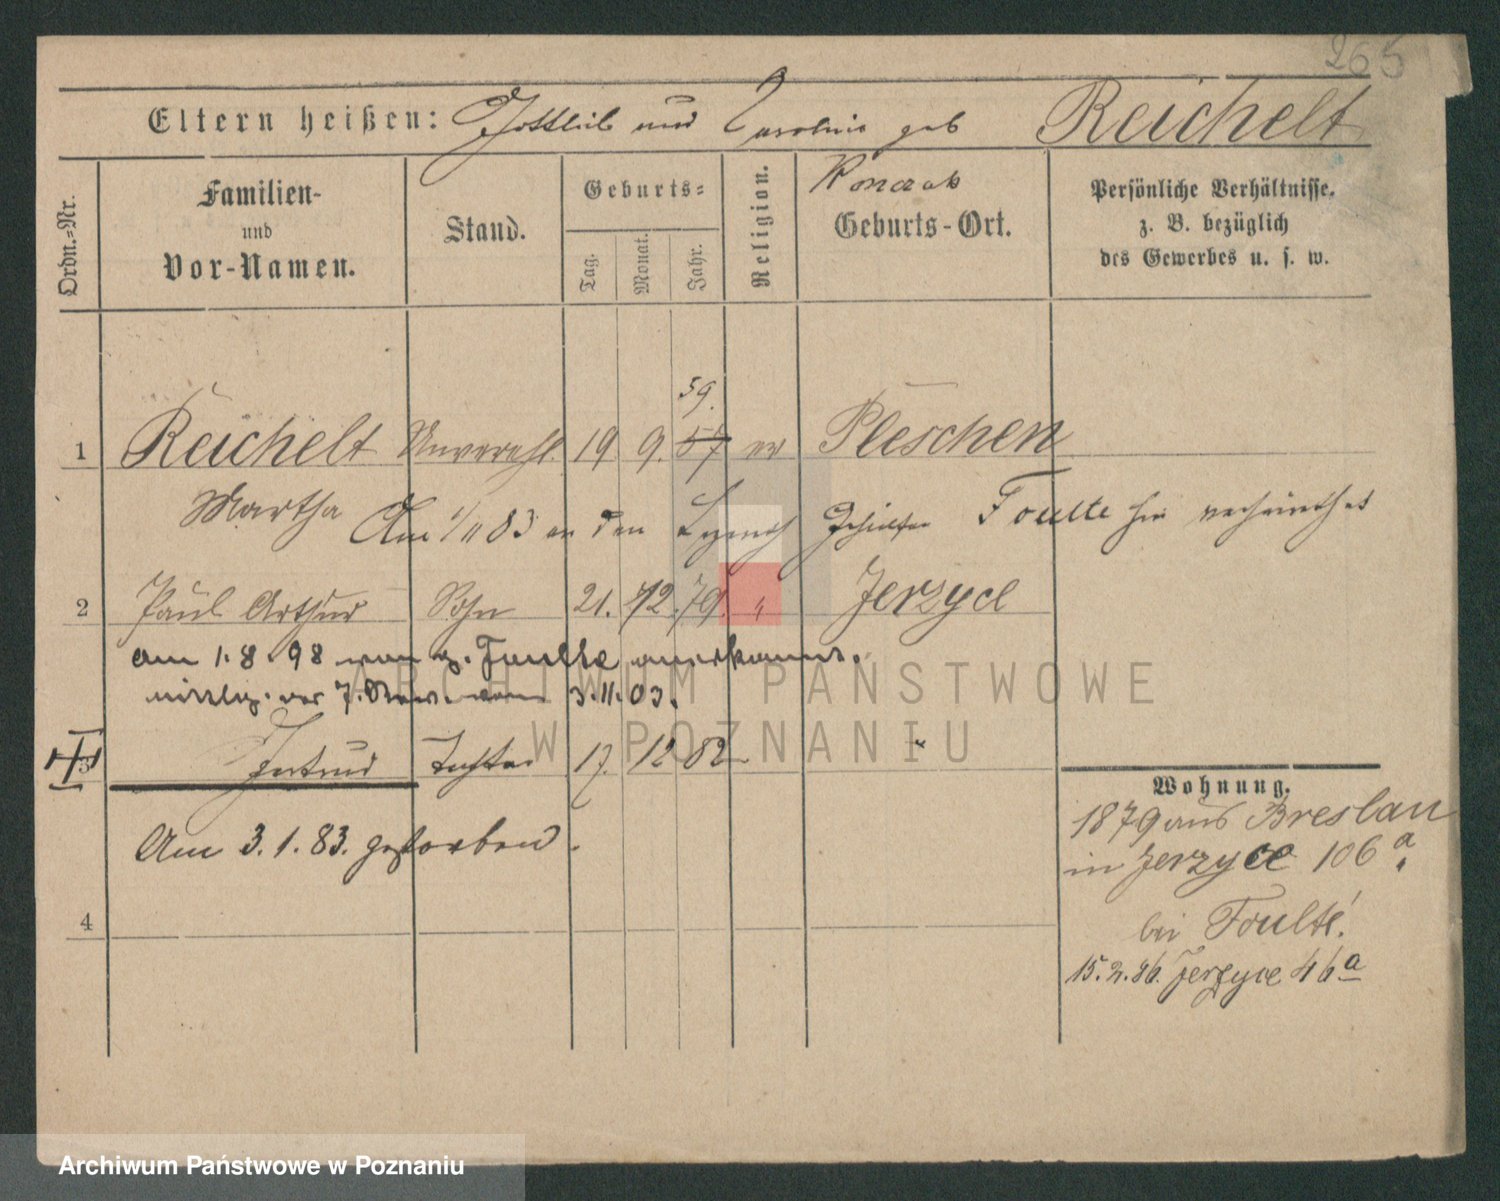 265
Eltern heißen: Gottlieb und Caroline geb Reichelt
Konrad
Ordn.-Nr.
Familien-
und
Vor-Namen.
Stand.
Geburts-
Tag.
Monat.
Jahr.
Religion.
Geburts-Ort.
Persönliche Verhältnisse.
z. B. bezüglich
des Gewerbes u. s. w.
59.
1 Reichelt Unverehl. 19 9. 57 ev Pleschen
Martha Am 1/11 83 an den Gehilfen Foulte hier verheirathet
2 Paul Arthur Sohn 21. 12. 79. " Jerzyce
am 1.8.98 von g. Foulte anerkannt.
vom 3.11.03.
3 Gertrud Tochter 17. 12 82 "
Am 3.1.83. gestorben.
4
Wohnung.
1879 aus Breslau
in Jerzyce 106 a.
bei Foulte!
15.2.86. Jerzyce 46a
ARCHIWUM PAŃSTWOWE
W POZNANIU
Archiwum Państwowe w Poznaniu